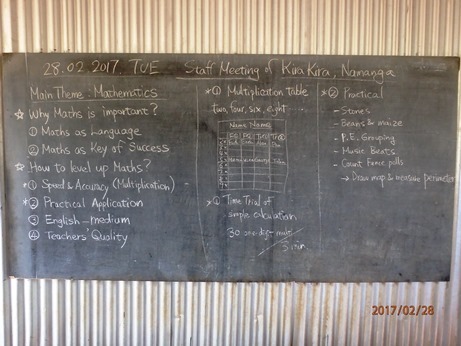 28.02.2017. TUE Staff Meeting of Kira Kira, Namanga
Main Theme: Mathematics
☆ Why Maths is important?
① Maths as Language
② Maths as Key of Success
☆ How to level up Maths?
*① Speed & Accuracy (Multiplication)
*② Practical Application
③ English-medium
④ Teachers' Quality
*① Multiplication table
two, four, six, eight ....
Name Name
*① Time Trial of
simple calculation
30 one-digit mult.
3 min.
*② Practical
- Stones
- Beans & maize
- P.E. Grouping
- Music Beats
- Count Fence polls
→ Draw map & measure perimeter
2017/02/28